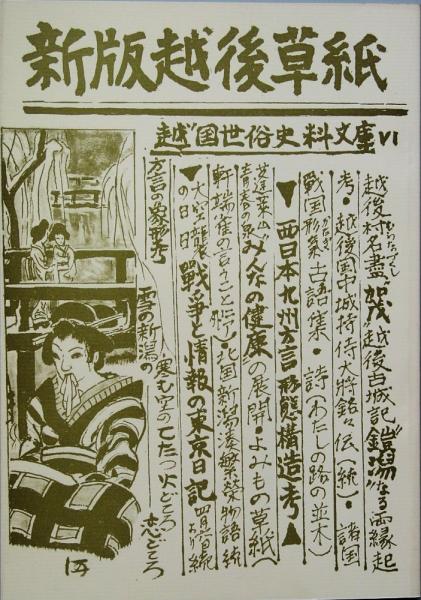 新版越後草紙
越国世俗史料文庫 VI
越後村名盡 加茂 越後古城記 鎧潟なる雨縁起
考・越後国中城持侍大将銘々伝(続)・諸国
戦国形気古語集・詩(わたしの路の並木)
▼西日本九州方言形態構造考▲
青春の泉 みんなの健康の展開・よみもの草紙(
軒端雀の言うことにゃ)北国新潟湊繁栄物語 続
▼大空襲の日日 戦争と情報の東京日記 続
方言の象形考
雪の新潟の
恋どころ